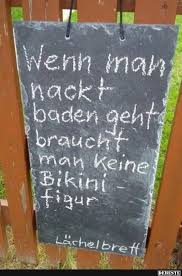 Wenn man
nackt
baden geht
braucht
man keine
Bikini-
figur
Lächelbrett